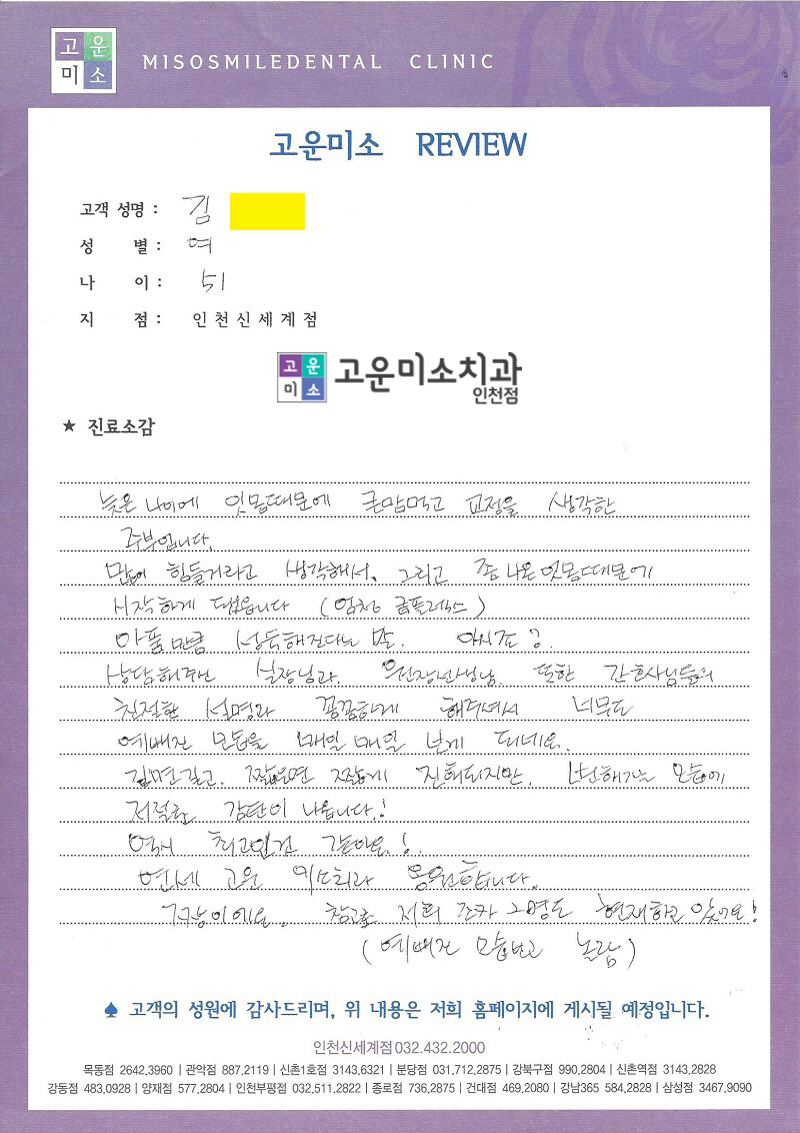 고운
미소
MISOSMILEDENTAL CLINIC
고운미소 REVIEW
고객 성명 : 김
성 별 : 여
나 이 : 51
지 점 : 인천신세계점
고운
미소
고운미소치과
인천점
★ 진료소감
늦은 나이에 잇몸때문에 큰맘먹고 교정을 생각한
주부입니다.
많이 힘들거라고 생각해서, 그리고 좀 나온 잇몸때문에
시작하게 되었습니다 (엄청 콤플렉스)
아픔만큼 성숙해진다는 말. 아시죠?
상담해주신 실장님과. 원장선생님. 또한 간호사님들의
친절한 설명과 꼼꼼하게 해주셔서 너무도
예뻐진 모습을 매일 매일 보게 되네요.
길면길고. 짧으면 짧게 진행되지만. 변해가는 모습에
저절로 감탄이 나옵니다.!
역시 최고인건 같아요.!
연세 고운 미소치과 응원합니다.
참고로 저희 조카 2명도 현재하고 있어요!
(예뻐진 모습보고 놀람)
♠ 고객의 성원에 감사드리며, 위 내용은 저희 홈페이지에 게시될 예정입니다.
인천신세계점 032.432.2000
목동점 2642.3960 | 관악점 887.2119 | 신촌1호점 3143.6321 | 분당점 031.712.2875 | 강북구점 990.2804 | 신촌역점 3143.2828
강동점 483.0928 | 양재점 577.2804 | 인천부평점 032.511.2822 | 종로점 736.2875 | 건대점 469.2080 | 강남365 584.2828 | 삼성점 3467.9090